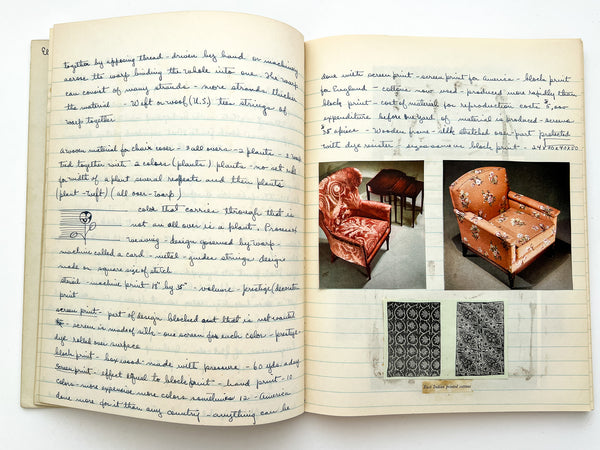 together by opposing thread - driven by hand or machinery
across the warp binding the whole into one. The warp
can consist of many strands - more strands thicker
the material - Weft or woof (U.S.) ties strings of
warp together
a woven material for chair cover - 2 all overs - 2 plants -
tied together with 2 colors (plants) plants - no set
for width of a plant several repeats and then plants
(plant - weft) (all over - warp)
color that carries through that is
not an all over is a plant. Process of
weaving - design governed by warp -
machine called a card - metal - guides strings designs
made on square size of stitch
- machine print 18" by 35" - volume - prestige (decorative
print
screen print - part of design blocked out that is not wanted
- screen is made of silk - one screen for each color - prestige -
dye rolled over surface
block print - boxwood - made with pressure - 60 yds a day
screen print - effect equal to block print - hand print - 10
colors - more expensive more colors sometimes 12 - America
done more for it than any country - anything can be
done with screen print - screen print for America - block print
for England - cottons now used - produced more rapidly than
block print - cost of material for reproduction costs $5,000
expenditure before one yard of material is produced - screens
$35 apiece - Wooden frame - silk stretched over - part protected
with dye resister - block print -
East Indian printed cottons